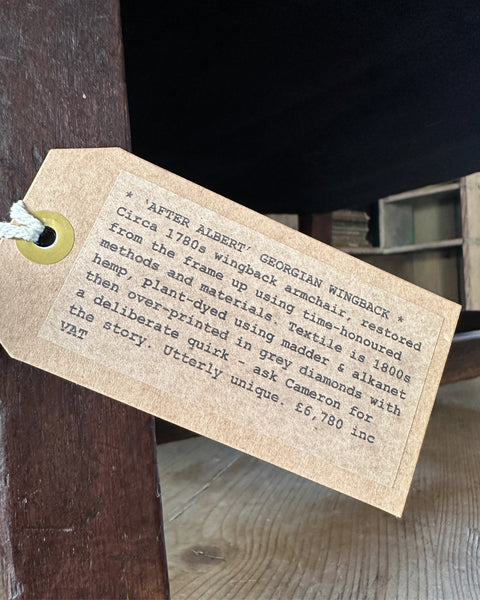 * 'AFTER ALBERT' GEORGIAN WINGBACK *
Circa 1780s wingback armchair, restored
from the frame up using time-honoured
methods and materials. Textile is 1800s
hemp, plant-dyed using madder & alkanet
then over-printed in grey diamonds with
a deliberate quirk – ask Cameron for
the story. Utterly unique. £6,780 inc
VAT